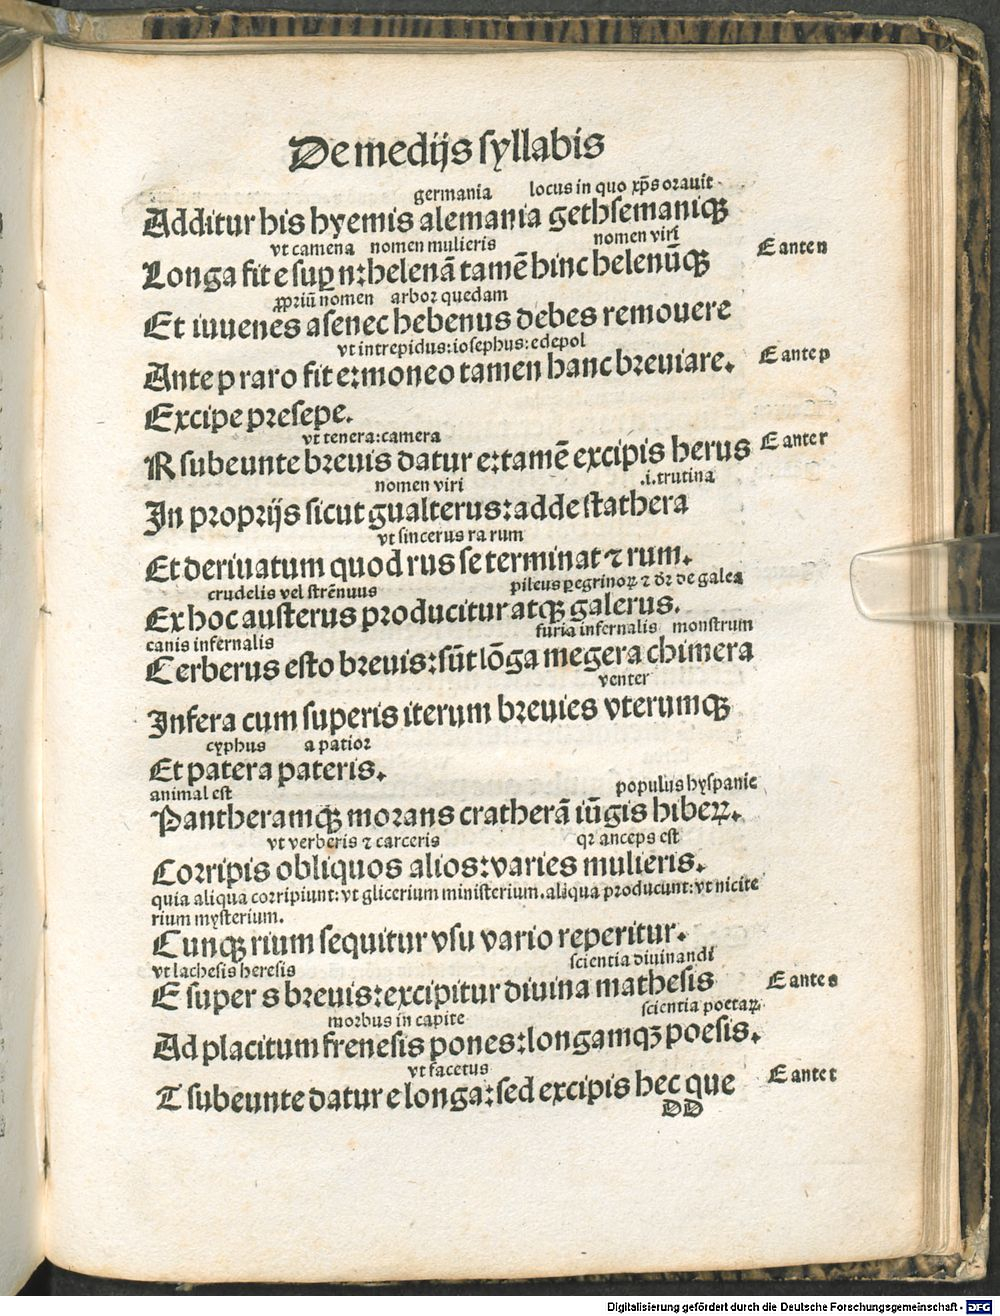 De medijs syllabis
germania locus in quo xp̄s orauit
Additur his hyemis alemania gethsemaniqꝫ
vt camena nomen mulieris nomen viri
Longa fit e suꝑ n: helenā tamē hinc helenūqꝫ
E ante n
ꝓpriū nomen arbor quedam
Et iuuenes a senec hebenus debes remouere
vt intrepidus: iosephus: edepol
Ante p raro fit e: moneo tamen hanc breuiare.
E ante p
Excipe presepe.
vt tenera: camera
R subeunte breuis datur e: tamē excipis herus
E ante r
nomen viri .i. trutina
In proprijs sicut gualterus: adde stathera
vt sincerus ra rum
Et deriuatum quod rus se terminat ⁊ rum.
crudelis vel strēnuus pileus ꝑegrinoꝝ ⁊ dr̄ de galea
Ex hoc austerus producitur atqꝫ galerus.
furia infernalis monstrum
canis infernalis
Cerberus esto breuis: sūt lōga megera chimera
venter
Infera cum superis iterum breuies vterumqꝫ
cyphus a patior
Et patera pateris.
animal est populus hyspanie
Pantheramqꝫ morans cratherā iūgis hiberꝝ.
vt verberis ⁊ carceris qr anceps est
Corripis obliquos alios: varies mulieris.
quia aliqua corripiunt: vt glicerium ministerium. aliqua producunt: vt nicite
rium mysterium.
Cunqꝫ rium sequitur vsu vario reperitur.
vt lachesis heresis scientia diuinandi
E super s breuis: excipitur diuina mathesis
E ante s
morbus in capite scientia poetaꝝ
Ad placitum frenesis pones: longamqꝫ poesis.
vt facetus
T subeunte datur e longa: sed excipis hec que
E ante t
DD
Digitalisierung gefördert durch die Deutsche Forschungsgemeinschaft - DFG